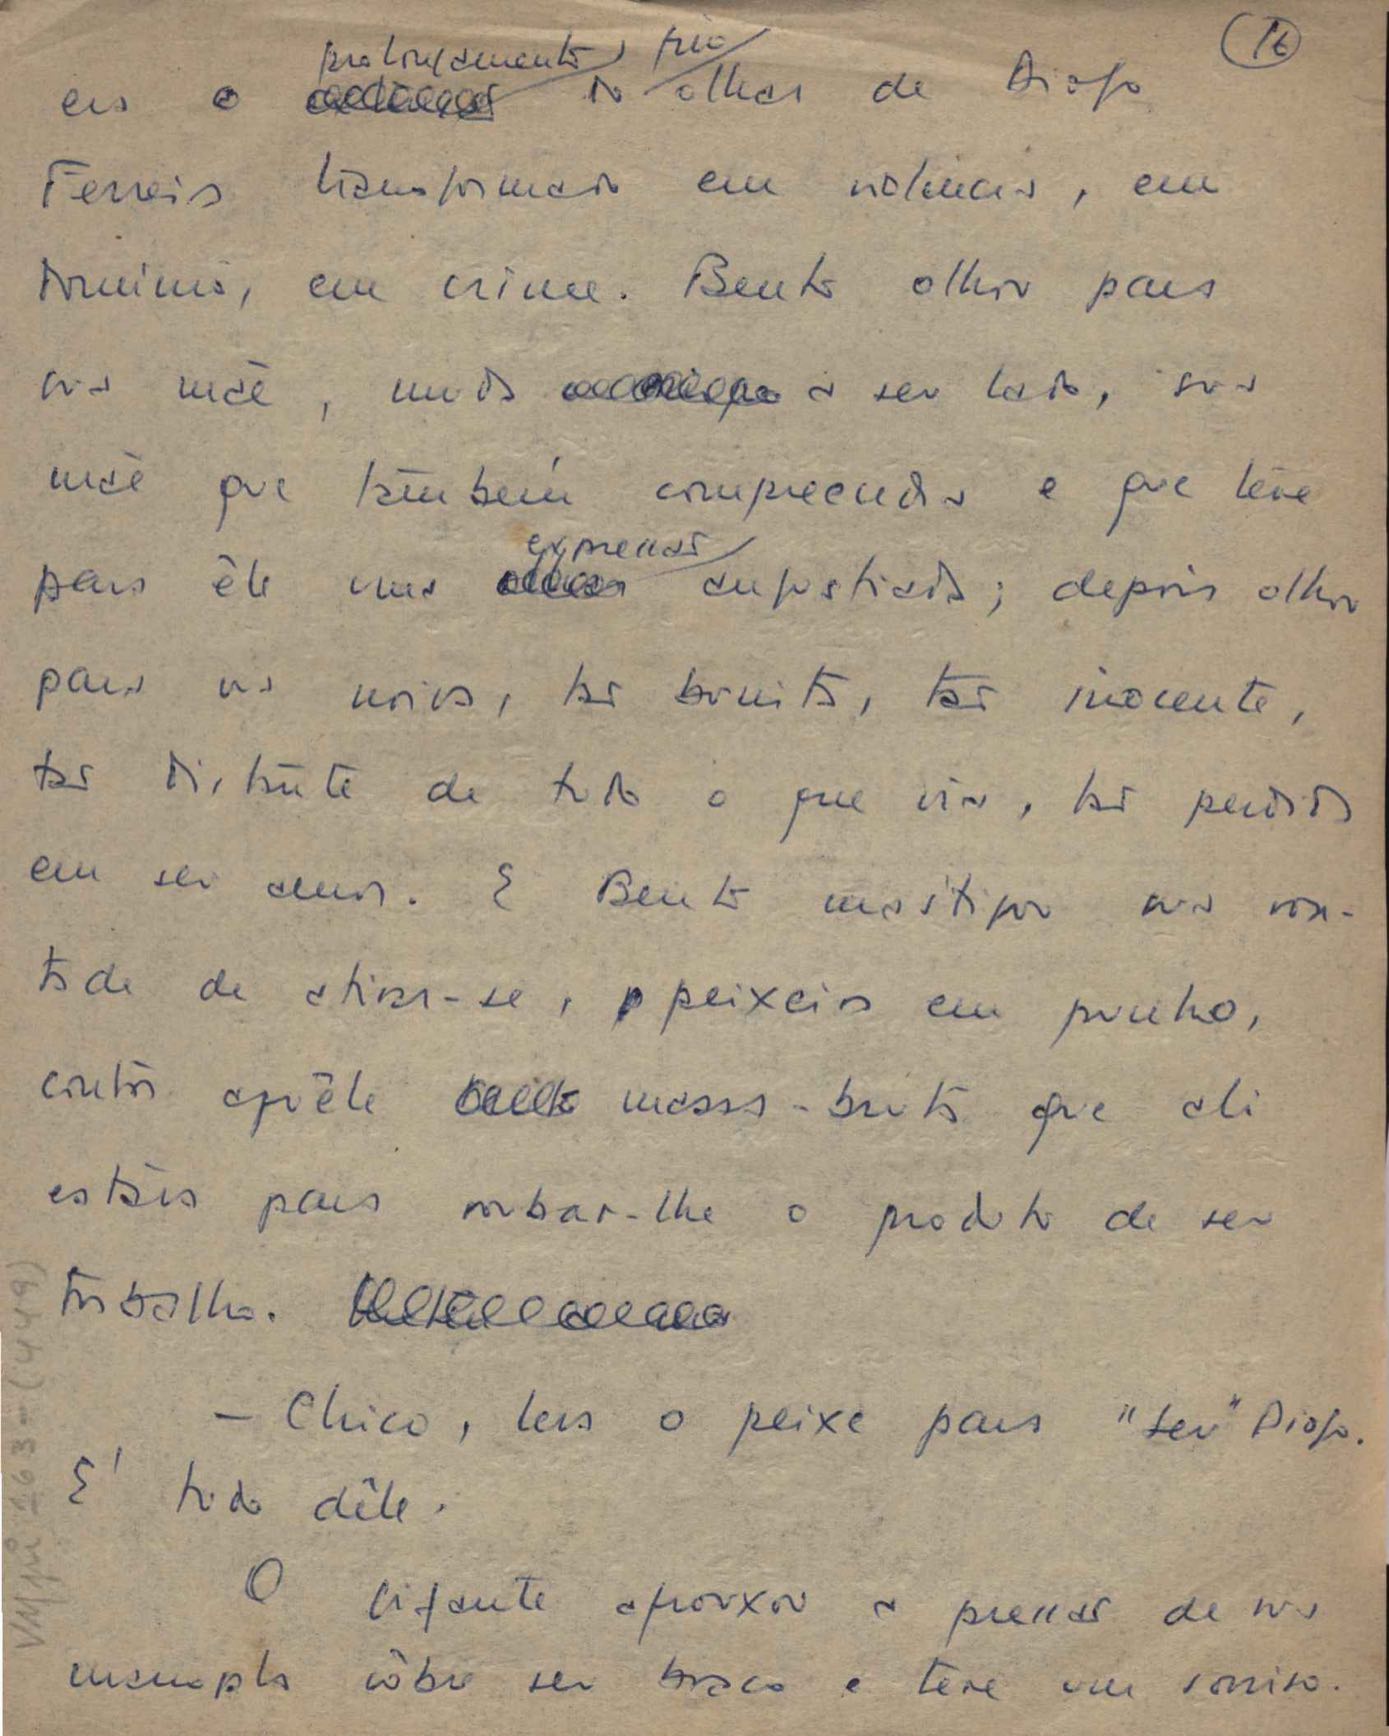 16
prolongamento frio
era o do olhar de Diogo
Ferreira transformado em violência, em
domínio, em crime. Bento olhou para
sua mãe, muda a seu lado, sua
mãe que também compreendia e que teve
expressão
para êle uma angustiada; depois olhou
para sua noiva, tão bonita, tão inocente,
tão distante de tudo o que via, tão perdida
em seu amor. E Bento mastigou sua von-
tade de atirar-se, peixeira em punho,
contra aquêle massa-bruta que ali
estava para roubar-lhe o produto de seu
trabalho.
— Chico, leva o peixe para "seu" Diogo.
E' todo dêle.
O gigante afrouxou a pressão de sua
manopla sôbre seu braço e teve um sorriso.
VMpi 163-(449)